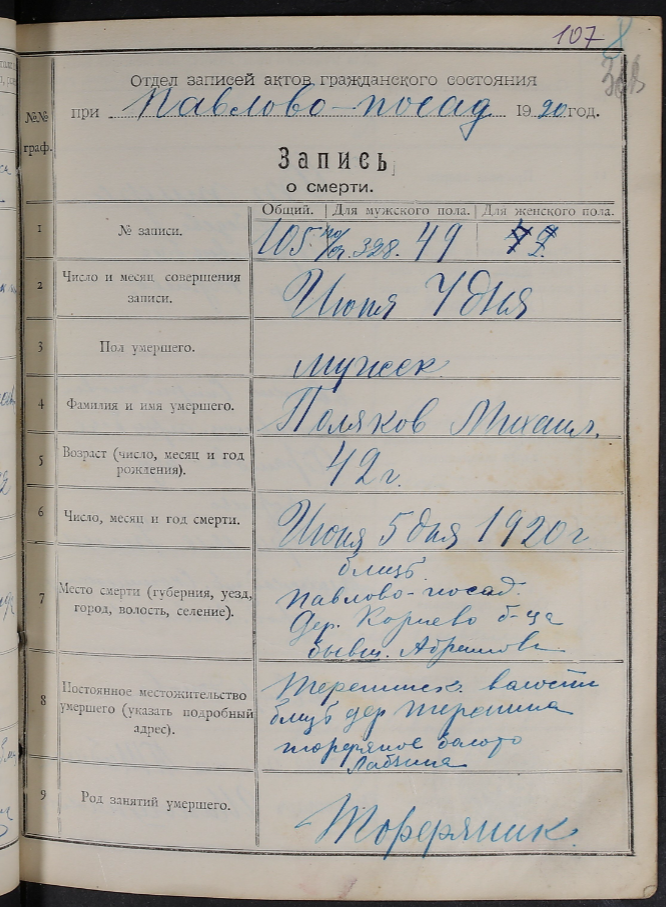 107 8
Отдел записей актов гражданского состояния
при Павлово-посад 1920 год.
Запись
о смерти.
№№ граф.
Общий. Для мужского пола. Для женского пола.
1 № записи. 105. 328. 49
2 Число и месяц совершения записи. Июня 7 дня
3 Пол умершего. мужск.
4 Фамилия и имя умершего. Поляков Михаил.
5 Возраст (число, месяц и год рождения). 42 г.
6 Число, месяц и год смерти. Июня 5 дня 1920 г.
7 Место смерти (губерния, уезд, город, волость, селение). близь
Павлово-посад.
дер. Корнево б-ца
бывш. Абрамова
8 Постоянное местожительство умершего (указать подробный адрес). волости
близь дер
болото
9 Род занятий умершего. Торфяник.